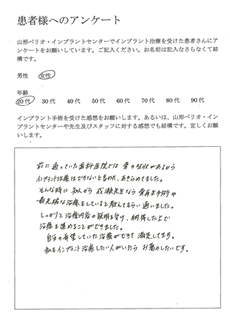 患者様へのアンケート
山形ペリオ・インプラントセンターでインプラント治療を受けた患者さんにア
ンケートをお願いしています。ご記入ください。お名前は記入なさらなくて結
構です。
男性 女性
年齢
20代 30代 40代 50代 60代 70代 80代 90代
インプラント手術を受けた感想をお願いします。あるいは、山形ペリオ・イン
プラントセンターや先生及びスタッフに対する感想でも結構です。宜しくお願
いします。
前に通っていた歯科医院では 骨の状状があるから
インプラント治療はできないと言われ、あきらめてました。
そんな時に 知人から 成瀬先生なら 骨再生手術や
最先端な治療をしていると教えてもらい通いました。
しっかりと治療内容の説明を受け、納得した上で
治療を進めることができました。
自分の希望していた治療ができて 満足してます。
私もインプラント治療したい人がいたら お薦めしたいです。